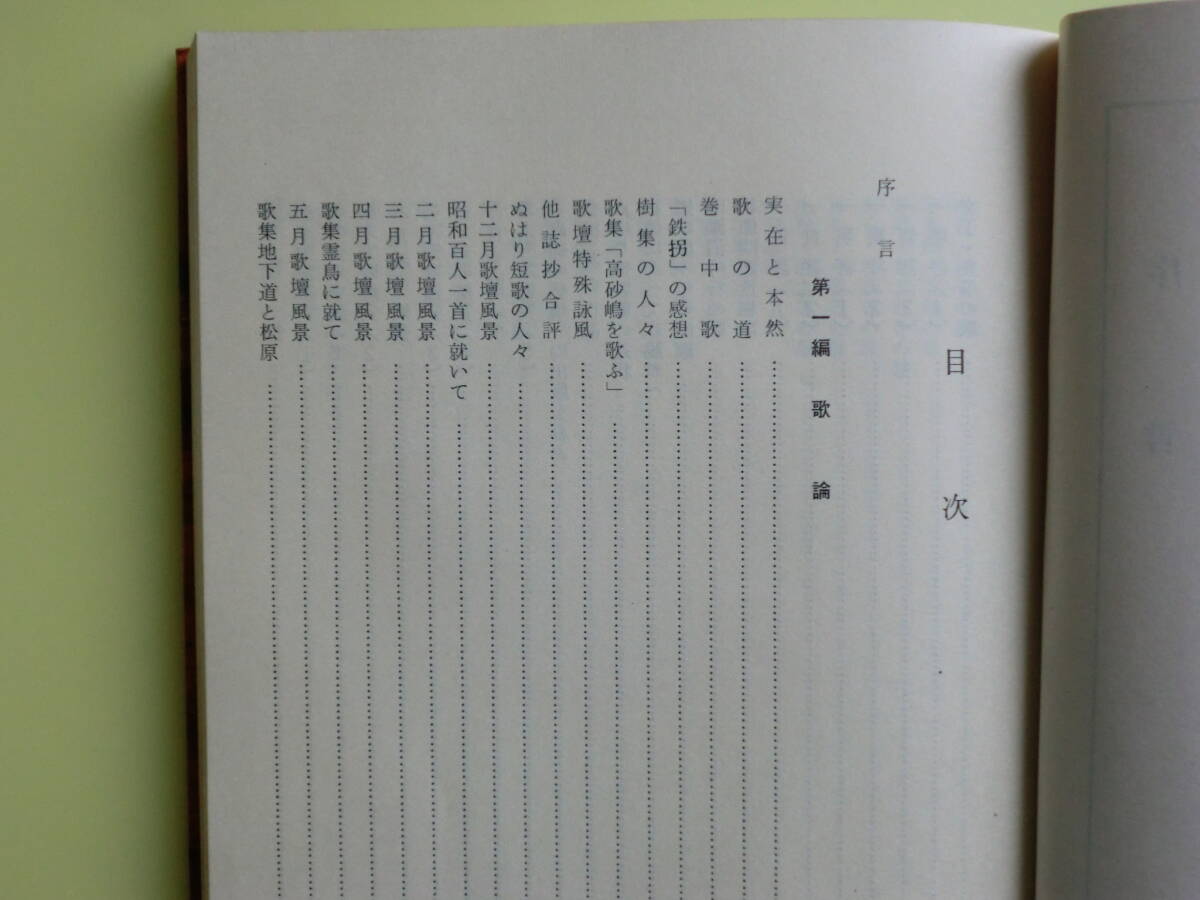 目次
序言
第一編 歌論
実在と本然
歌の道
巻中歌
「鉄拐」の感想
樹集の人々
歌集「高砂嶋を歌ふ」
歌壇特殊詠風
他誌抄合評
ぬはり短歌の人々
十二月歌壇風景
昭和百人一首に就いて
二月歌壇風景
三月歌壇風景
四月歌壇風景
歌集霊鳥に就て
五月歌壇風景
歌集地下道と松原